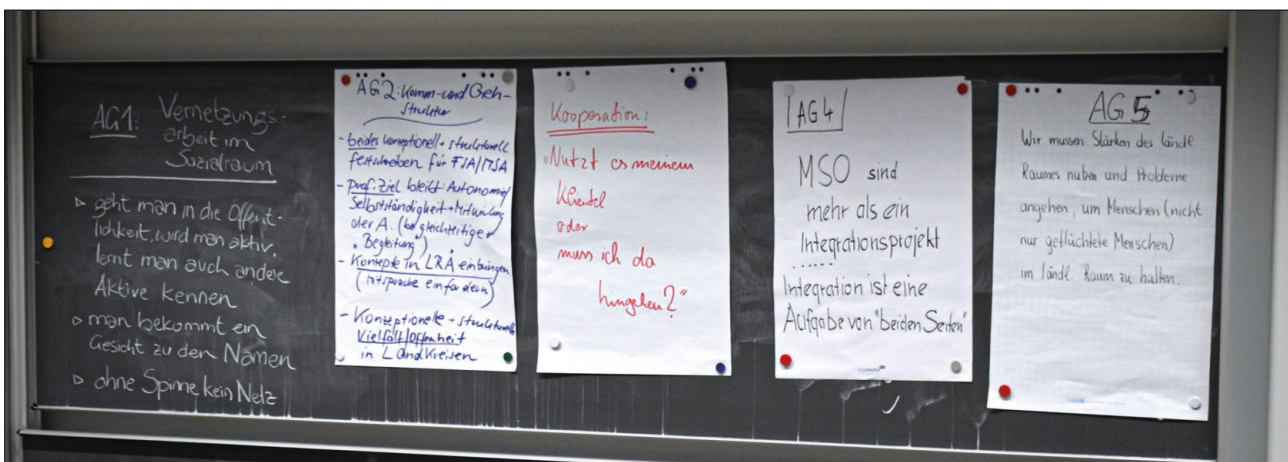 AG1: Vernetzungs-
arbeit im
Sozialraum
▹ geht man in die Öffent-
lichkeit, wird man aktiv,
lernt man auch andere
Aktive kennen
▹ man bekommt ein
Gesicht zu den Namen
▹ ohne Spinne kein Netz
AG2: Komm- und Geh-
Struktur
- beides konzeptionell + strukturell
festschreiben für FSA/MSA
- prof. Ziel bleibt Autonomie/
Selbstständigkeit + Mitwirkung
der A. (bei gleichzeitiger
"Begleitung")
- Konzepte in LRÄ einbringen
(Mitsprache einfordern)
- Konzeptionelle + strukturelle
Vielfalt/Offenheit
in Landkreisen
Kooperation:
"Nutzt es meinem
Klientel
oder
muss ich da
hingehen?"
AG4
MSO sind
mehr als ein
Integrationsprojekt
Integration ist eine
Aufgabe von "beiden Seiten"
AG5
Wir müssen Stärken des ländl.
Raumes nutzen und Probleme
angehen, um Menschen (nicht
nur geflüchtete Menschen)
im ländl. Raum zu halten.